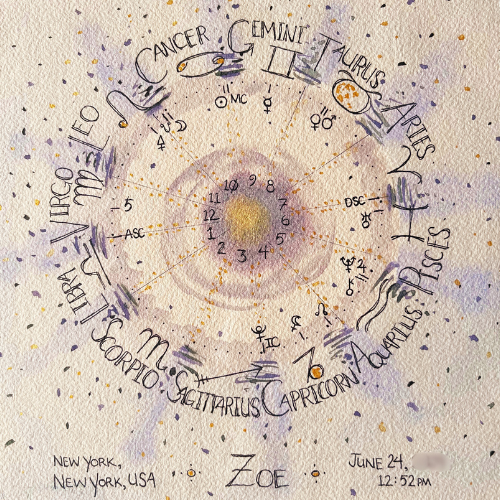 CANCER
GEMINI
TAURUS
ARIES
PISCES
AQUARIUS
CAPRICORN
SAGITTARIUS
SCORPIO
LIBRA
VIRGO
LEO
☉ MC
☿
♀♂
DSC
ASC
IC
10 9 8
11 7
12 6
1 5
2 3 4
NEW YORK,
NEW YORK, USA
ZOE
JUNE 24,
12:52 PM